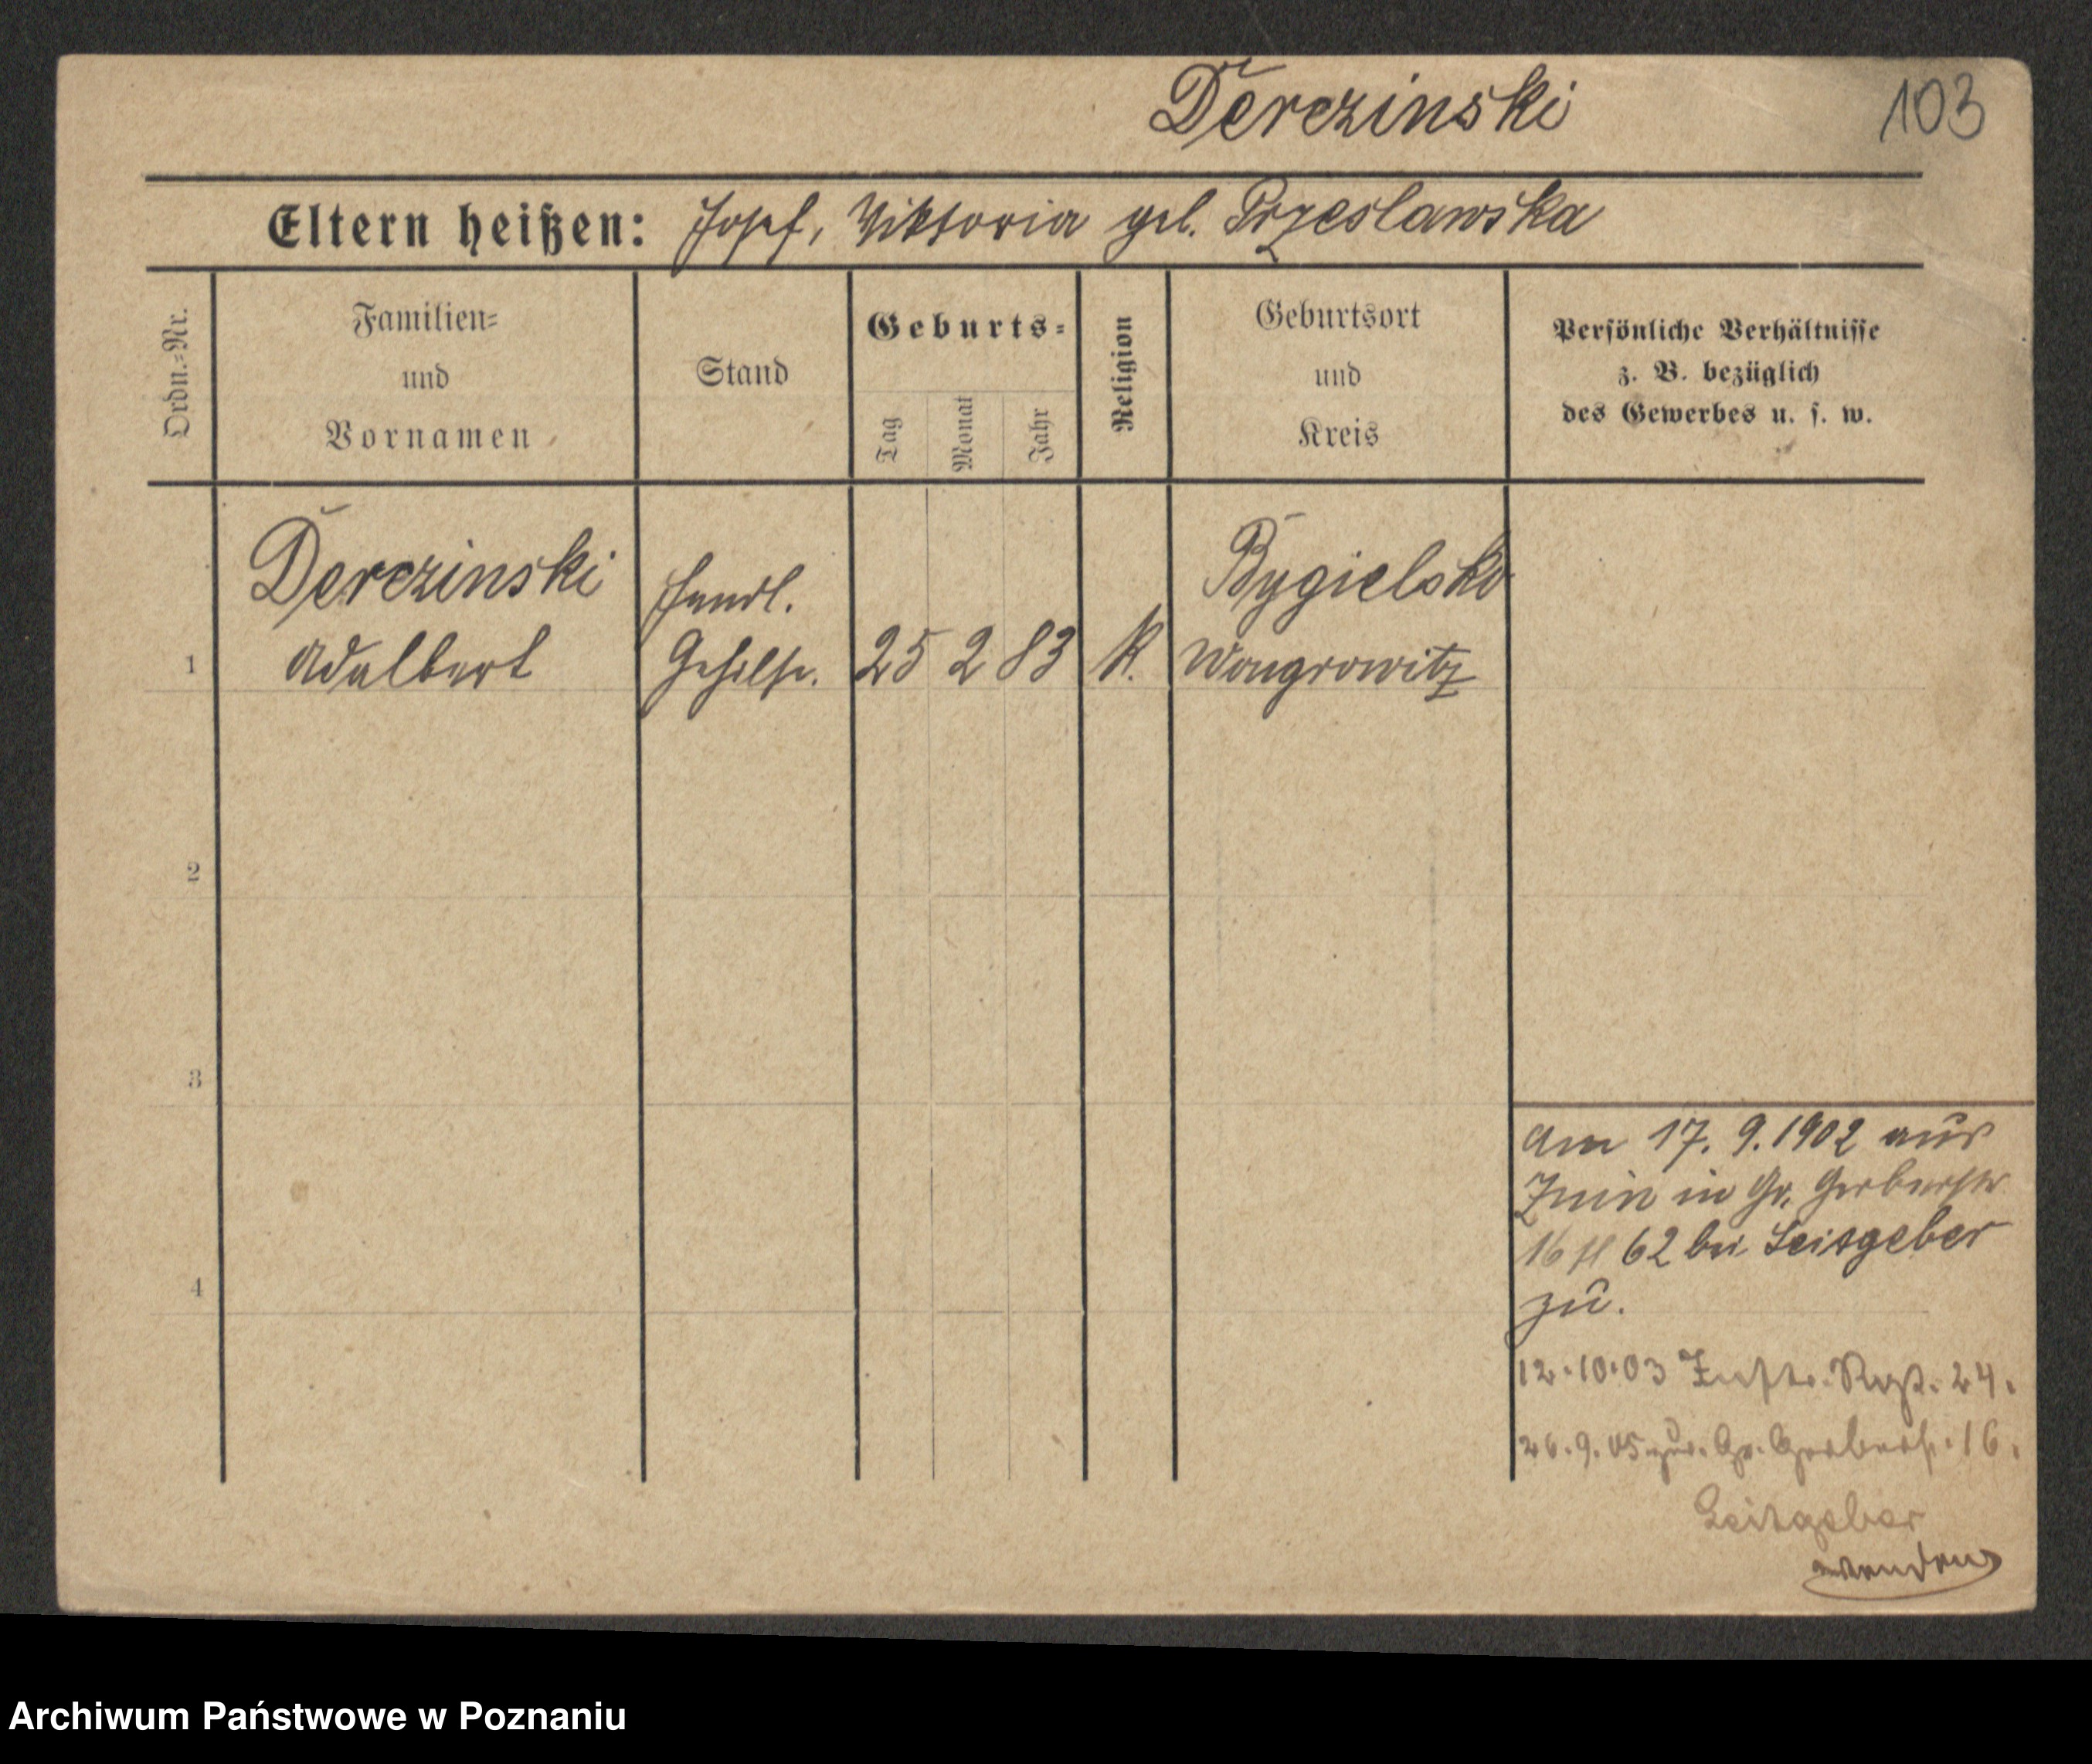 Derezinski
103
Eltern heißen: Josef, Viktoria geb. Przeslawska
Ordn.-Nr.
Familien-
und
Vornamen
Stand
Geburts-
Tag
Monat
Jahr
Religion
Geburtsort
und
Kreis
Persönliche Verhältnisse
z. B. bezüglich
des Gewerbes u. s. w.
1
Derezinski
Adalbert
Handl.
Gehilfe.
25 2 83
K.
Bygielsko
Wongrowitz
2
3
4
Am 17. 9. 1902 aus
Znin in Gr. Gerberstr
16 62 bei Leitgeber
zu.
12.10.03 24.
26.9.05 zur. Gr. Gerberstr. 16.
Leitgeber
wenden
Archiwum Państwowe w Poznaniu